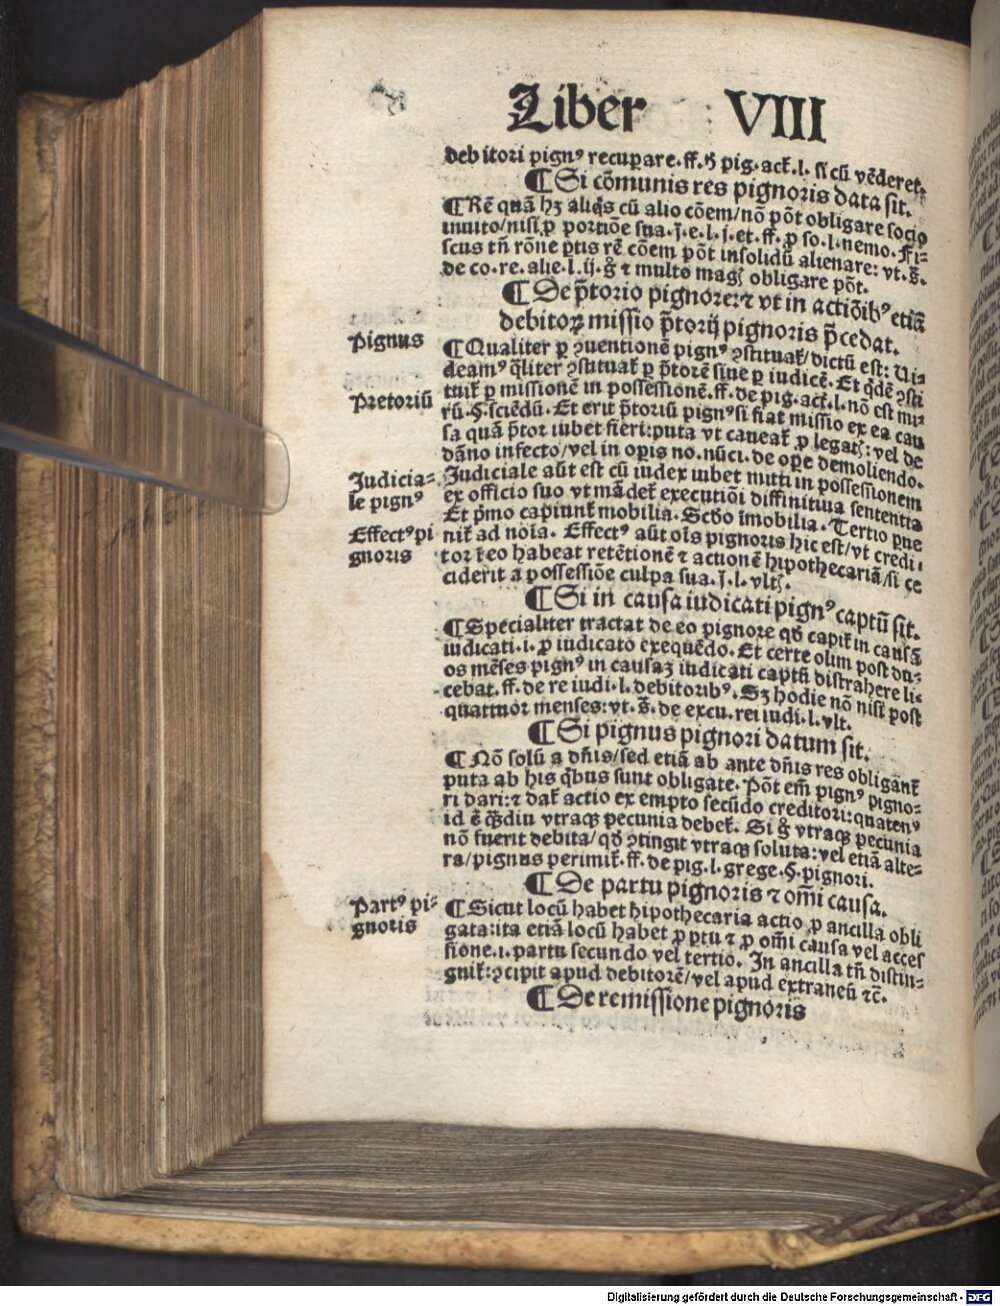 Liber VIII
debitori pignꝰ recuꝑare.ff.ꝺ pig.act̄.l.si cū vēderet.
¶ Si cōmunis res pignoris data sit.
¶ Rē quā hꝫ aliq̇s cū alio cōem/nō pōt obligare socio
inuito/nisi ꝓ portiōe sua.j̄.e.l.j.et.ff.ꝓ so.l.nemo.Fi⸗
scus tn̄ rōne ꝑtis rē cōem pōt insolidū alienare: vt.s̄.
de co.re.alie.l.ij.g̊ ⁊ multo magꝭ obligare pōt.
¶ De p̄torio pignore:⁊ vt in actiōibꝰ etiā
debitoꝝ missio p̄torij pignoris p̄cedat.
Pignus
¶ Qualiter ꝑ ꝯuentionē pignꝰ ꝯstituat̄/dictū est: Ui⸗
deamꝰ q̄liter ꝯstituat̄ ꝑ p̄torē siue ꝑ iudicē. Et q̇dē ꝯsti
tuit̄ ꝑ missionē in possessionē.ff.de pig.act̄.l.nō est mi⸗
Pretoriū
rū.§.sciēdū. Et erit p̄toriū pignꝰ si fiat missio ex ea cau
sa quā p̄tor iubet fieri:puta vt caueat̄ ꝓ legatꝭ: vel de
dāno infecto/vel in oꝑis no.nūci.de oꝑe demoliendo.
Judicia⸗
le pignꝰ
Judiciale aūt est cū iudex iubet mitti in possessionem
ex officio suo vt mādet̄ executiōi diffinitiua sententia
Et ṗmo capiunt̄ mobilia. Scd̄o īmobilia. Tertio ꝑue
Effectꝰ pi
gnoris
nit̄ ad noīa. Effectꝰ aūt oīs pignoris hic est/vt credi⸗
tor ī eo habeat retētionē ⁊ actionē hipothecariā/si ce
ciderit a possessiōe culpa sua.j̄.l.vltꝭ.
¶ Si in causa iudicati pignꝰ captū sit.
¶ Specialiter tractat de eo pignore qd̄ capit̄ in causā
iudicati.i.ꝓ iudicato exequēdo. Et certe olim post du⸗
os mēses pignꝰ in causaꝫ iudicati captū distrahere li⸗
cebat.ff.de re iudi.l.debitoribꝰ. Sꝫ hodie nō nisi post
quattuor menses: vt.s̄.de excu.rei iudi.l.vlt.
¶ Si pignus pignori datum sit.
¶ Nō solū a dn̄is/sed etiā ab ante dn̄is res obligant̄
puta ab his q̇bus sunt obligate. Pōt em̄ pignꝰ pigno⸗
ri dari:⁊ dat̄ actio ex empto secūdo creditori:quatenꝰ
id ē q̄ꝫdiu vtraqꝫ pecunia debet̄. Si g̊ vtraqꝫ pecunia
nō fuerit debita/qd̄ ꝯtingit vtraqꝫ soluta: vel etiā alte⸗
ra/pignus perimit̄.ff.de pig.l.grege.§.pignori.
¶ De partu pignoris ⁊ om̄i causa.
Partꝰ pi⸗
gnoris
¶ Sicut locū habet hipothecaria actio ꝓ ancilla obli
gata:ita etiā locū habet ꝓ ꝑtu ⁊ ꝓ om̄i causa vel acces
sione.i.partu secundo vel tertio. In ancilla tn̄ distin⸗
guit̄:ꝯcipit apud debitorē/vel apud extraneū ⁊c̄.
¶ De remissione pignoris
Digitalisierung gefördert durch die Deutsche Forschungsgemeinschaft - DFG